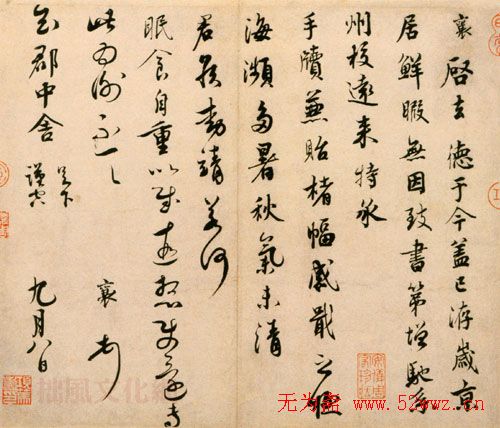 襄啓去德于今蓋已洊歲京
居鮮暇無因致書第增馳系
州校遠來特承
手牘兼貽楮幅感戢之極
海瀕多暑秋氣未清
君侯動靖若何
眠食自重以慰遠想使還專
此為謝不一一 襄頓首
知郡中舍足下 謹空 九月八日
拙風文化網
无为斋 www.52wwz.cn